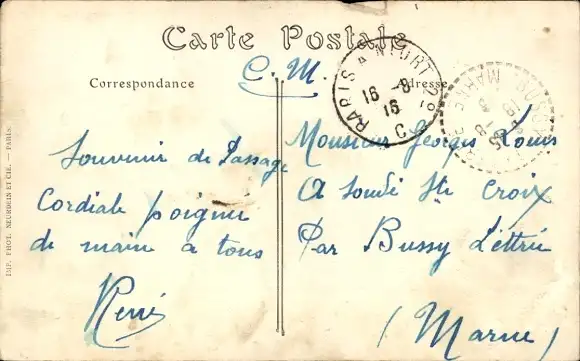 Carte Postale
C. M.
Correspondance
Adresse
PARIS
16 - 8
16
C
Souvenir de Passage
Cordiale poignée
de main a tous
René
Monsieur Georges Louis
A Soudé Ste Croix
Par Bussy Lettrée
(Marne)
IMP. PHOT. NEURDEIN ET CIE. — PARIS.